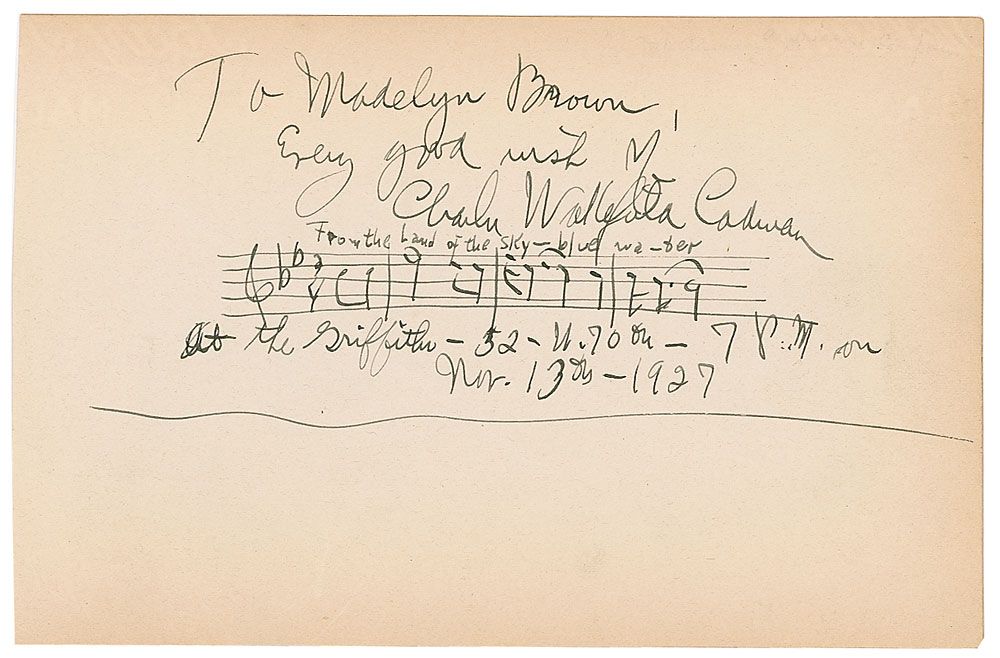 To Madelyn Brown,
Every good wish of
Charles Wakefield Cadman
From the Land of the Sky-blue wa-ter
At the Griffiths - 52 - W. 70th - 7 P.M. on
Nov. 13th - 1927